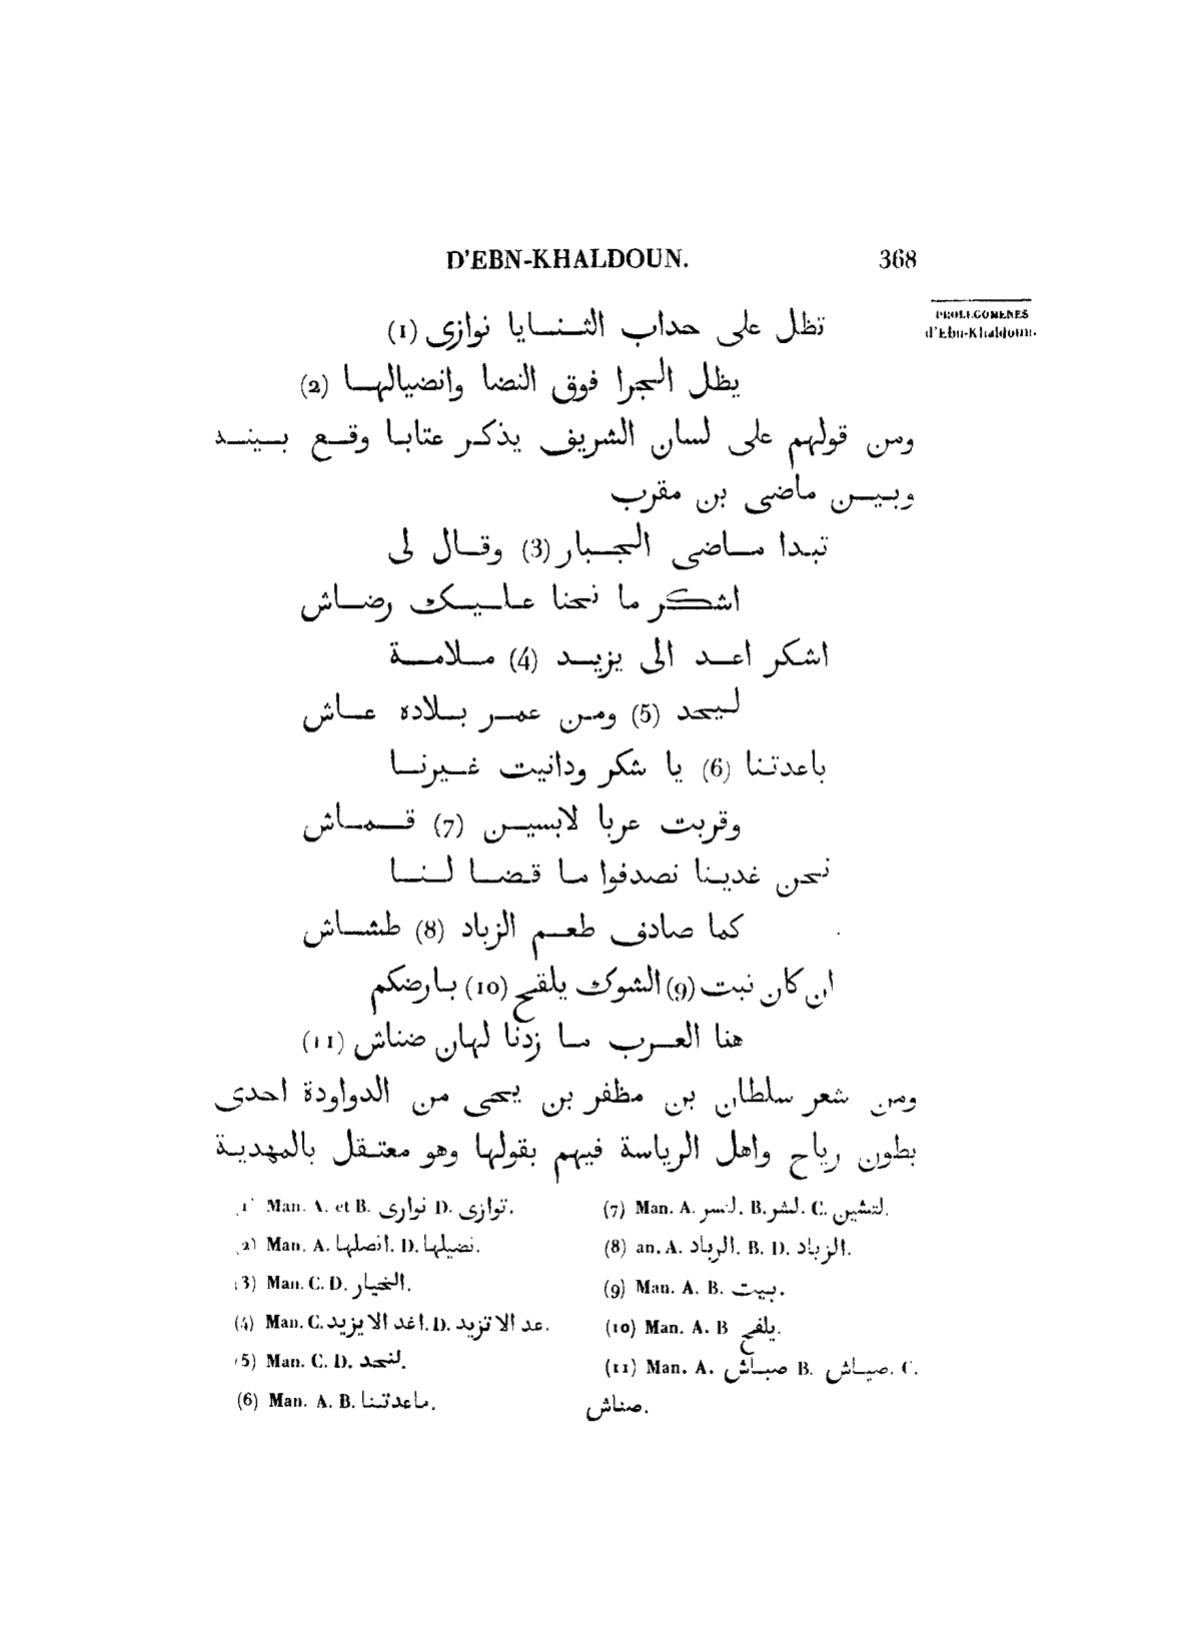 D'EBN-KHALDOUN. 368
PROLÉGOMÈNES
d'Ebn-Khaldoun.
تظل على حداب الثنايا نوازى (1)
يظل الجرا فوق النضا وانضيالها (2)
ومن قولهم على لسان الشريف يذكر عتابا وقع بينه
وبين ماضى بن مقرب
تبدا ماضى الجبار (3) وقال لى
اشكر ما نحنا عليك رضاش
اشكر اعد الى يزيد (4) ملامة
ليحد (5) ومن عمر بلاده عاش
باعدتنا (6) يا شكر ودانيت غيرنا
وقربت عربا لابسين (7) قماش
نحن غدينا نصدفوا ما قضا لنا
كما صادف طعم الزباد (8) طشاش
ان كان نبت (9) الشوك يلقح (10) بارضكم
هنا العرب ما زدنا لهان ضناش (11)
ومن شعر سلطان بن مظفر بن يحيى من الدواودة احدى
بطون رياح واهل الرياسة فيهم بقولها وهو معتقل بالمهدية
(1) Man. A. et B. نوارى D. توازى.
(2) Man. A. انصلها. D. نضيلها.
(3) Man. C. D. الخيار.
(4) Man. C. اغد الا يزيد. D. عد الا تزيد.
(5) Man. C. D. لنجد.
(6) Man. A. B. ماعدتنا.
(7) Man. A. لسر. B. لشر. C. لتشين.
(8) an. A. الرباد. B. D. الزباد.
(9) Man. A. B. بيت.
(10) Man. A. B يلفح.
(11) Man. A. صباش B. صياش. C.
صناش.